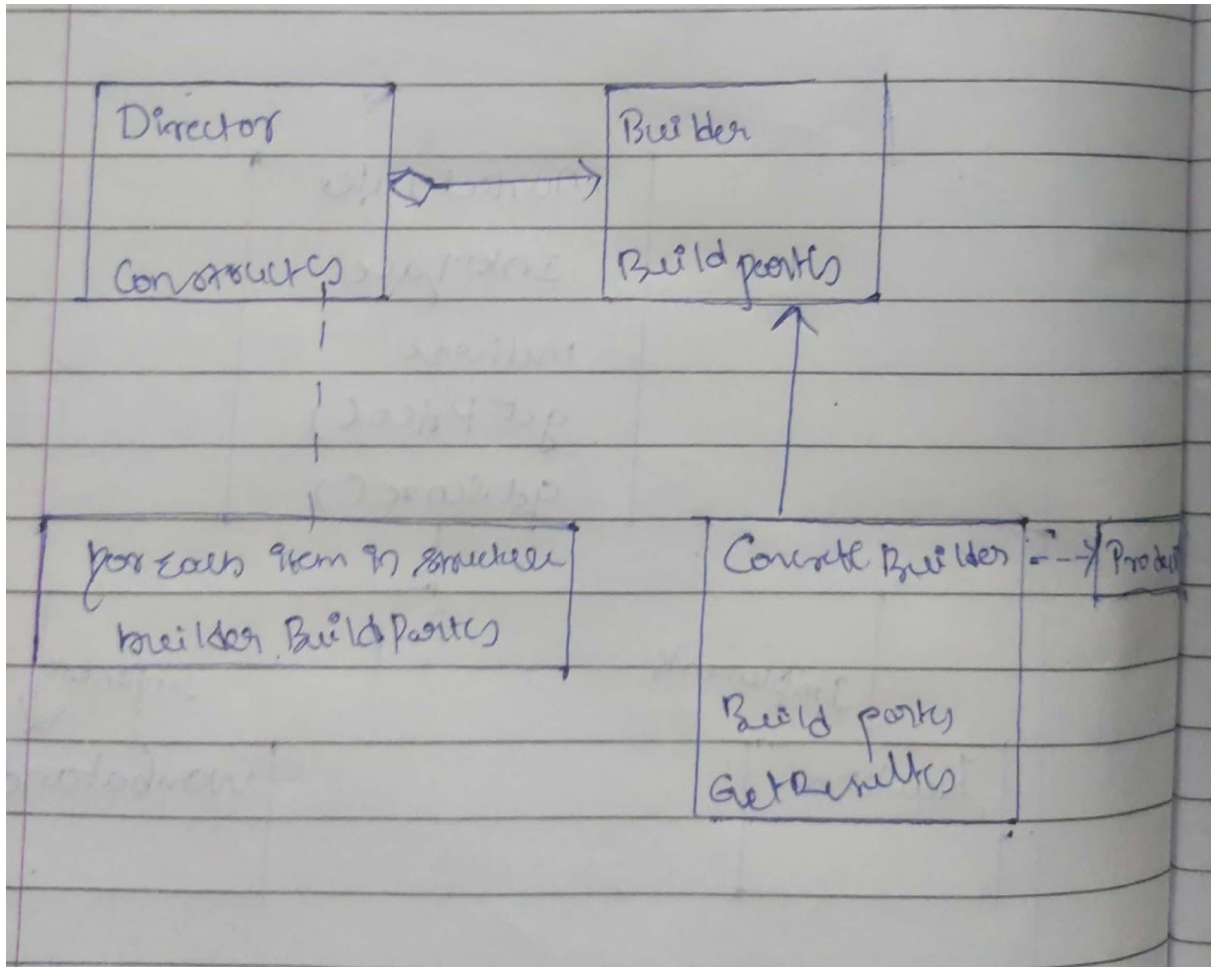 Director
Construct()
Builder
Build part()
for each item in structure
builder BuildPart()
Concrete Builder
Build part()
GetResult()
Product